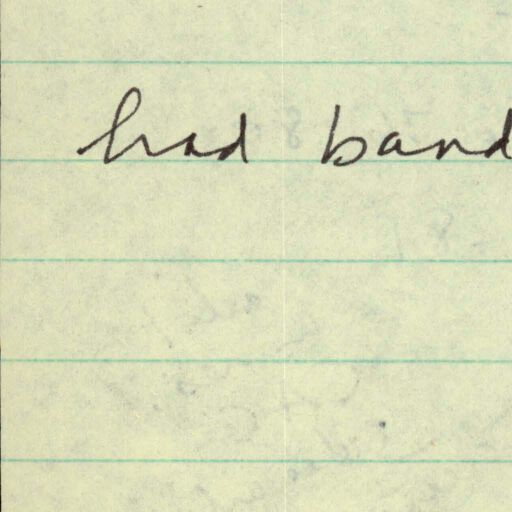 had band